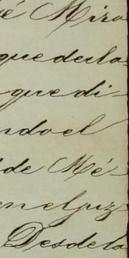 é Miro
que decla
que di-
ndo el
de Mé-
en el juz
Desde la